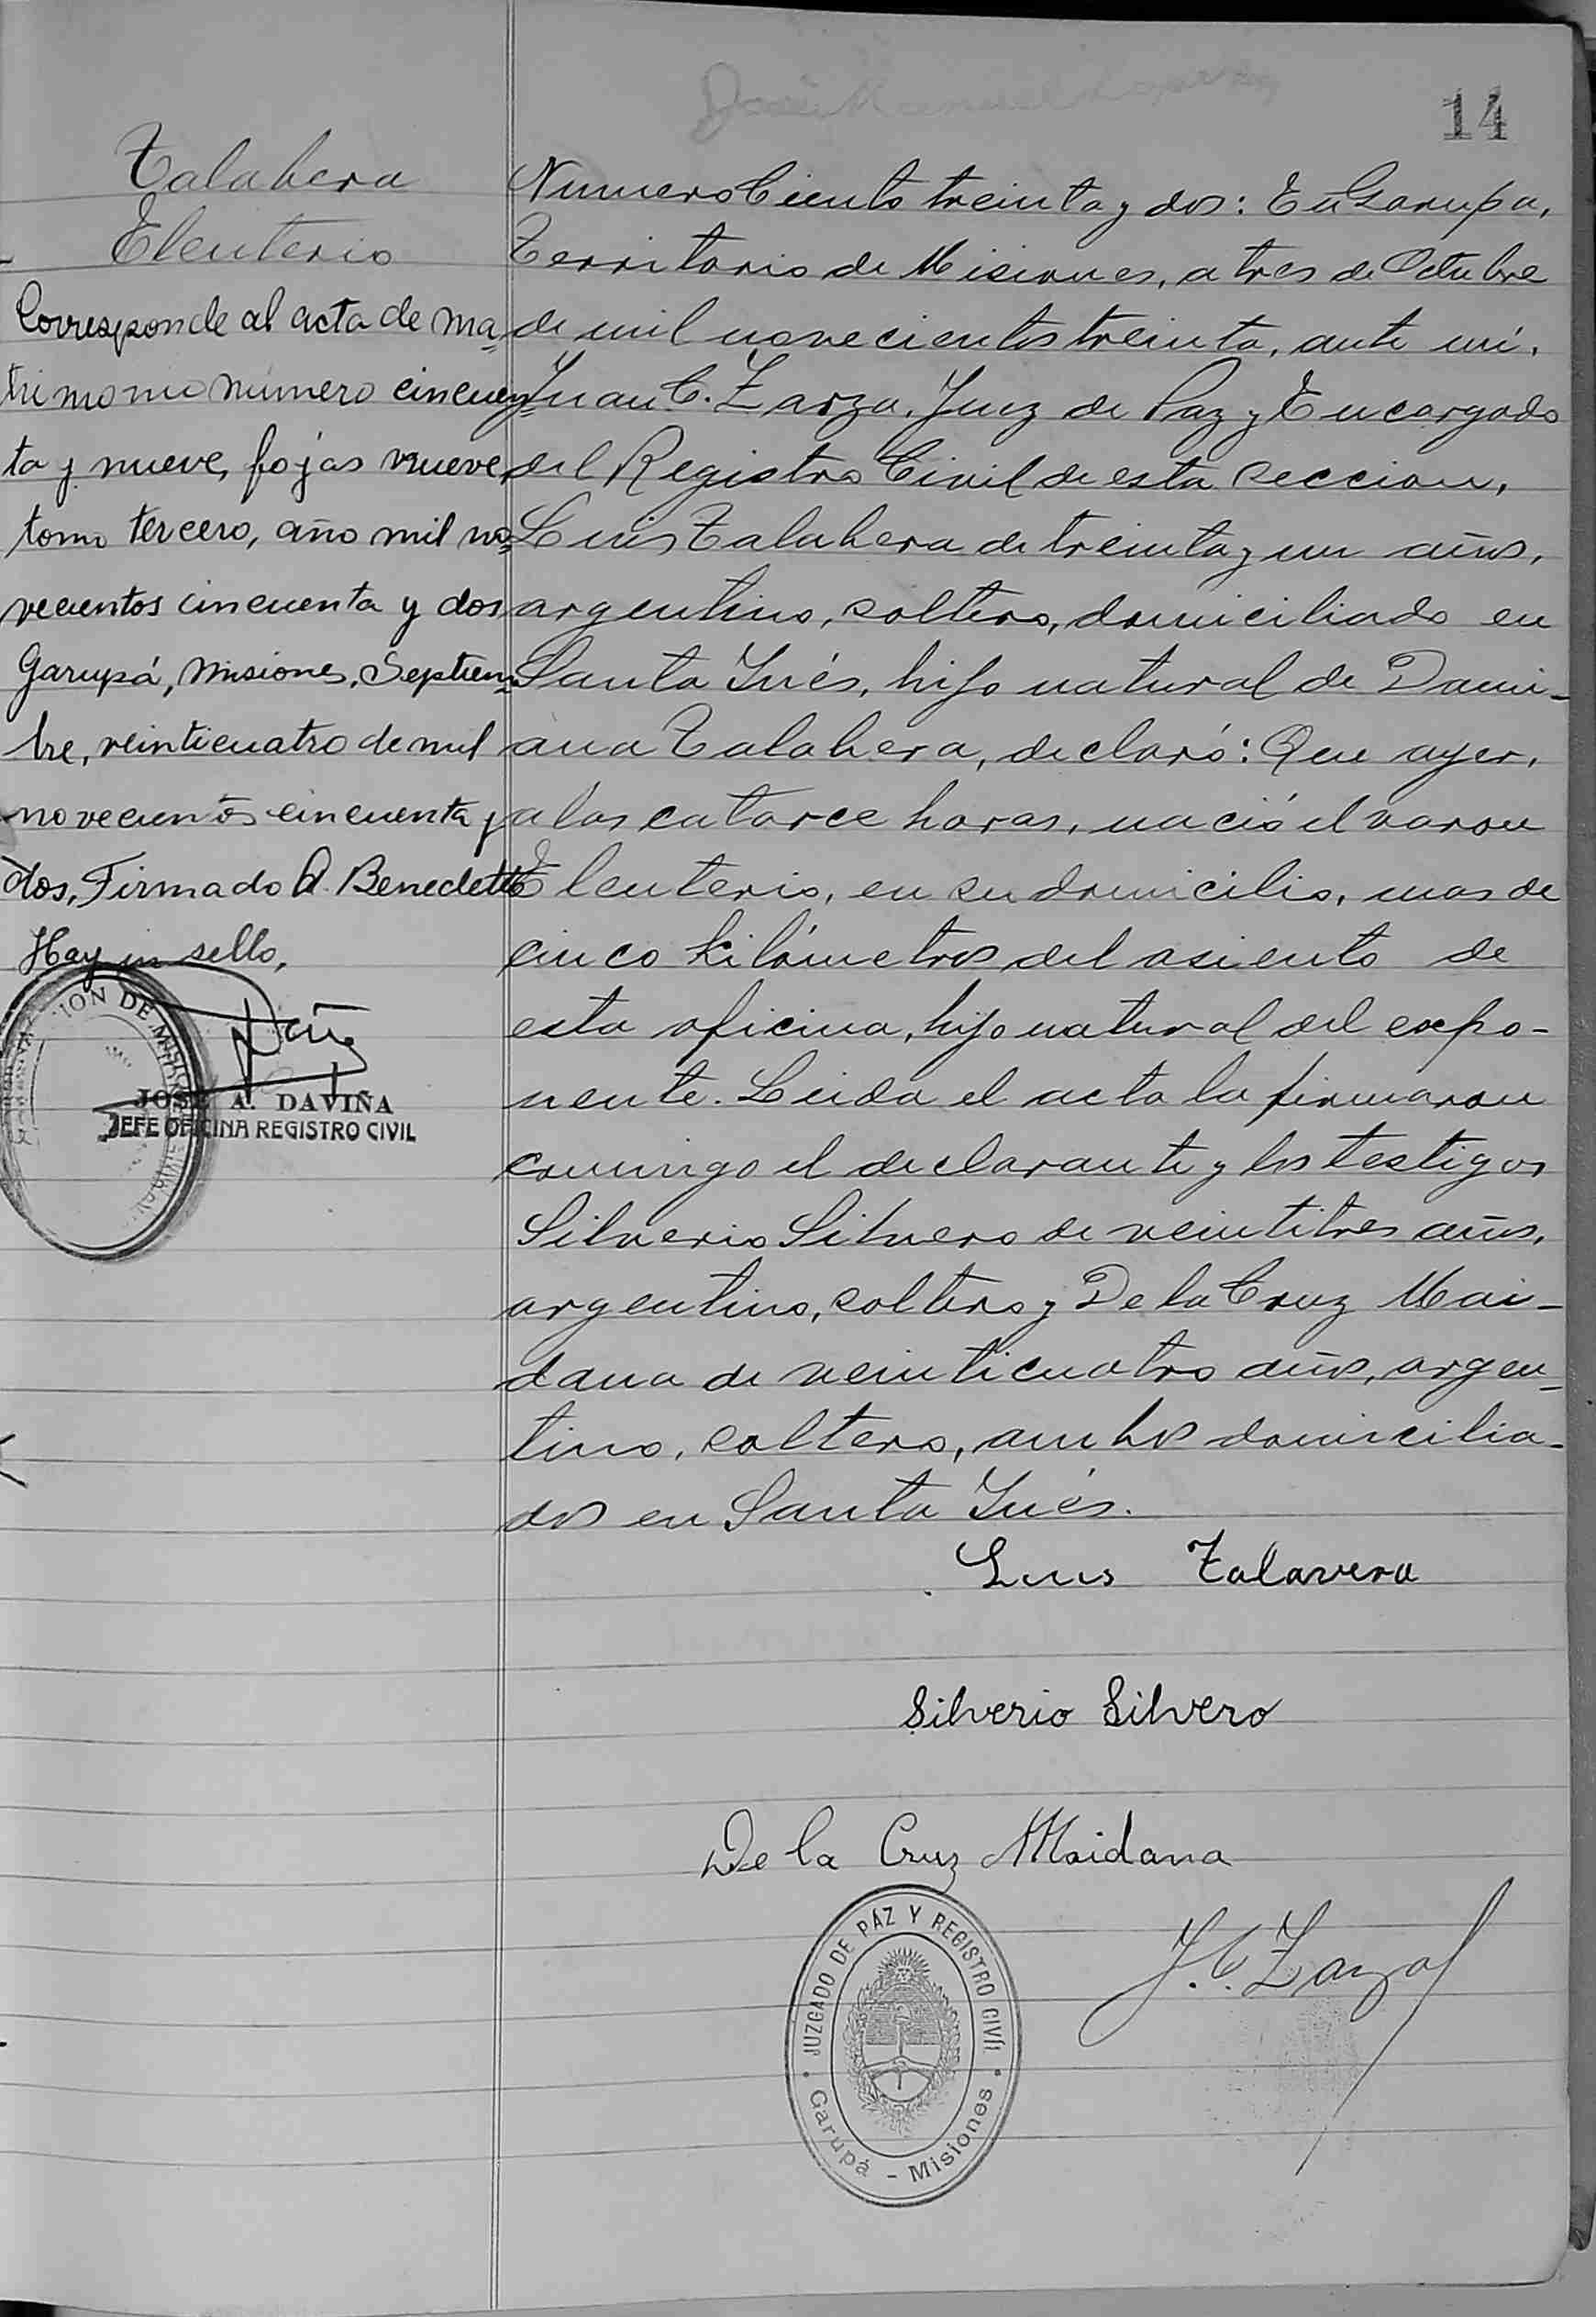 14
Talabera
Eleuterio
Corresponde al acta de ma=
trimonio número cincuen=
ta y nueve, fojas nueve
tomo tercero, año mil no=
vecientos cincuenta y dos
Garupá, Misiones, Septiem=
bre, veinticuatro de mil
novecientos cincuenta y
dos, Firmado A. Benedetti
Hay un sello,
JOSE A. DAVIÑA
JEFE OFICINA REGISTRO CIVIL
Numero Ciento treinta y dos: En Garupa,
Territorio de Misiones, a tres de Octubre
de mil novecientos treinta, ante mi,
Juan C. Zarza, Juez de Paz y Encargado
del Registro Civil de esta seccion,
Luis Talabera de treinta y un años,
argentino, soltero, domiciliado en
Santa Inés, hijo natural de Dami-
ana Talabera, declaró: Que ayer,
a las catorce horas, nació el varon
Eleuterio, en su domicilio, mas de
cinco kilómetros del asiento de
esta oficina, hijo natural del expo-
nente. Leida el acta la firmaron
conmigo el declarante y los testigos
Silverio Silvero de veintitres años,
argentino, soltero y De la Cruz Mai-
dana de veinticuatro años, argen-
tino, soltero, ambos domicilia-
dos en Santa Inés.
Luis Talavera
Silverio Silvero
De la Cruz Maidana
J. C. Zarza
JUZGADO DE PAZ Y REGISTRO CIVIL
Garupá - Misiones